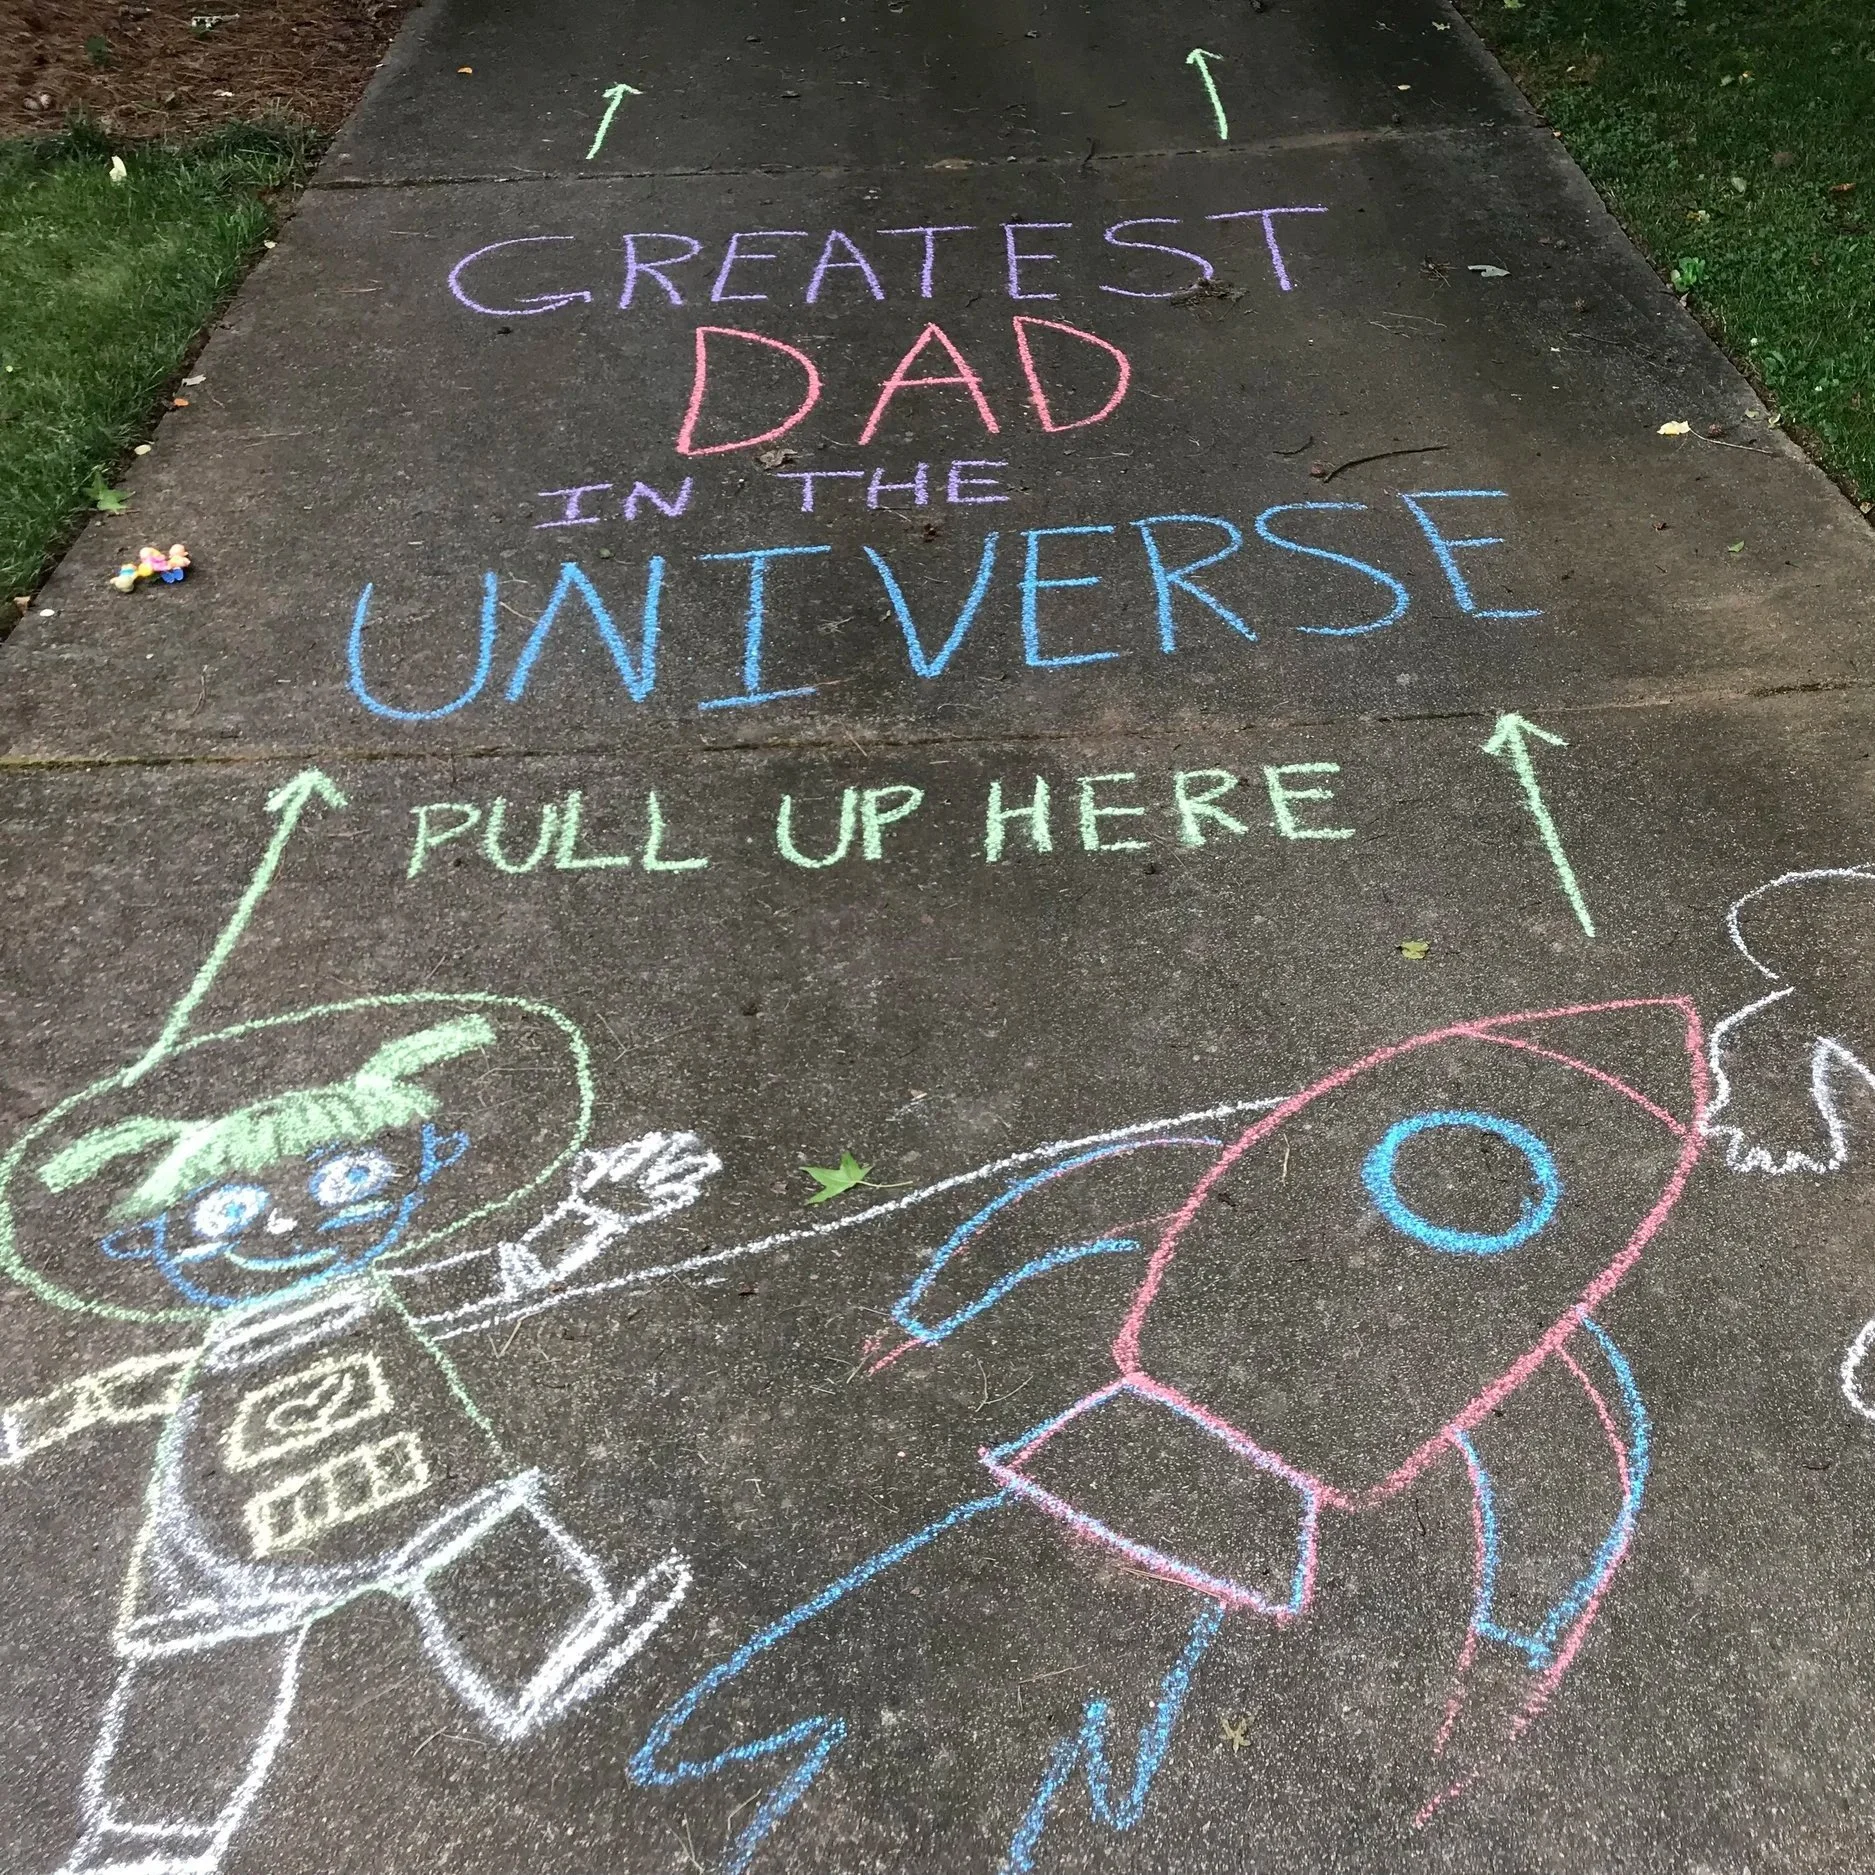 GREATEST
DAD
IN THE
UNIVERSE
PULL UP HERE